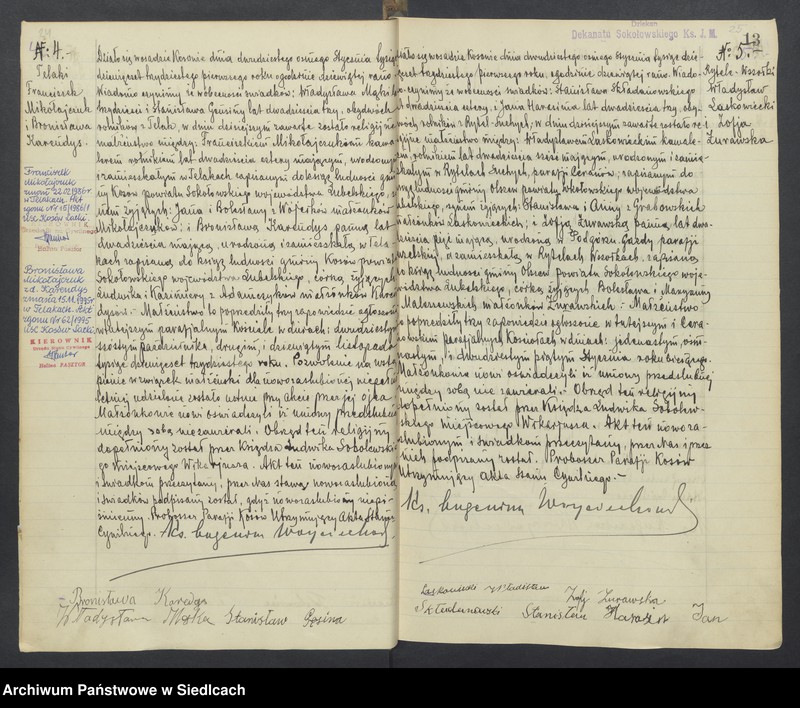 №: 4.
Telaki
Franciszek
Mikołajczuk
i Bronisława
Karendys.
Franciszek
Mikołajczuk
zmarł 22.02.1986r
w Telakach. Akt
zgonu Nr 15/1986/
USC Kosów Lacki.
Halina Pasztor
Bronisława
Mikołajczuk
z d. Karendys
zmarła 15.11.1995r
w Telakach. Akt
zgonu Nr 62/1995
USC Kosów Lacki
KIEROWNIK
Urzędu Stanu Cywilnego
Halina PASZTOR
Działo się w osadzie Kosowie dnia dwudziestego ósmego Stycznia tysiąc
dziewięćset trzydziestego pierwszego roku o godzinie dziewiątej rano.
Wiadomo czynimy, iż w obecności świadków: Władysława Mąki lat
trzydzieści i Stanisława Gęsiny lat dwadzieścia trzy, obydwóch
rolników z Telak, w dniu dzisiejszym zawarte zostało religijne
małżeństwo między: Franciszkiem Mikołajczukiem kawa-
lerem rolnikiem lat dwadzieścia cztery mającym, urodzonym
i zamieszkałym w Telakach zapisanym do ksiąg ludności gmi-
ny Kosów powiatu Sokołowskiego województwa Lubelskiego,
synem żyjących: Jana i Bolesławy z Wójcików małżonków
Mikołajczuków; i Bronisławą Karendys, panną lat
dwadzieścia mającą, urodzoną i zamieszkałą w Tela-
kach zapisaną do ksiąg ludności gminy Kosów powiatu
Sokołowskiego województwa Lubelskiego, córką żyjących
Ludwika i Kazimiery z Adamczyków małżonków Karen-
dysów. – Małżeństwo to poprzedziły trzy zapowiedzie ogłoszone
w tutejszym parafjalnym Kościele w dniach: dwudziestym
szóstym października, drugim, i dziewiątym listopada
tysiąc dziewięćset trzydziestego roku. Pozwolenie na wstą-
pienie w związek małżeński dla nowozaślubionej niepeł-
letniej udzielone zostało ustnie przy akcie przez jej ojca.
Małżonkowie nowi oświadczyli iż umowy przedślubnej
między sobą nie zawierali. – Obrzęd ten religijny
dopełniony został przez Księdza Ludwika Sobolewskie-
go miejscowego Wikarjusza. Akt ten nowozaślubionym
i świadkom przeczytany, przez Nas, stawającą nowozaślubioną
i świadków podpisany został, gdyż nowozaślubiony niepi-
śmienny. Proboszcz Parafji Kosów Utrzymujący Akta Stanu
Cywilnego. Ks. Eugeniusz Wojciechowski
Bronisława Karędys
Władysław Mąka Stanisław Gęsina
Dziekan
Dekanatu Sokołowskiego Ks. J. M.
25
13
№: 5.
Rytele-Wszołki
Władysław
Laskowiecki
i Zofja
Żurawska
Działo się w osadzie Kosowie dnia dwudziestego ósmego Stycznia tysiąc dzie-
więćset trzydziestego pierwszego roku, o godzinie dziewiątej rano. Wiado-
mo czynimy, że w obecności świadków: Stanisława Składanowskiego
lat dwadzieścia cztery, i Jana Harasima lat dwadzieścia trzy, oby-
dwóch rolników z Rytel-Suchych, w dniu dzisiejszym zawarte zostało re-
ligijne małżeństwo między: Władysławem Laskowieckim kawale-
rem, rolnikiem lat dwadzieścia sześć mającym, urodzonym i zamie-
szkałym w Rytelach Suchych, parafji Ceranów, zapisanym do
ksiąg ludności gminy Olszew powiatu Sokołowskiego województwa
Lubelskiego, synem żyjących: Stanisława i Anny z Grabowskich
małżonków Laskowieckich; i Zofją Żurawską panną, lat dwa-
dzieścia pięć mającą, urodzoną w Podgórzu Gazdy, parafji
a zamieszkałą w Rytelach Wszołkach, zapisaną
do ksiąg ludności gminy Olszew powiatu Sokołowskiego woje-
wództwa Lubelskiego, córką żyjących Bolesława i Marjanny
z Maleszewskich małżonków Żurawskich. – Małżeństwo
to poprzedziły trzy zapowiedzie ogłoszone w tutejszym i Cera-
nowskim parafjalnych Kościołach w dniach: jedenastym, ośm-
nastym, i dwudziestym piątym Stycznia roku bieżącego.
Małżonkowie nowi oświadczyli iż umowy przedślubnej
między sobą nie zawierali. – Obrzęd ten religijny
dopełniony został przez Księdza Ludwika Sobolew-
skiego miejscowego Wikarjusza. Akt ten nowoza-
ślubionym i świadkom przeczytany, przez Nas i przez
nich podpisany został. Proboszcz Parafji Kosów
Utrzymujący Akta Stanu Cywilnego. –
Ks. Eugeniusz Wojciechowski
Laskowiecki Władysław Zofja Żurawska
Składanowski Stanisław Harasim Jan
Archiwum Państwowe w Siedlcach